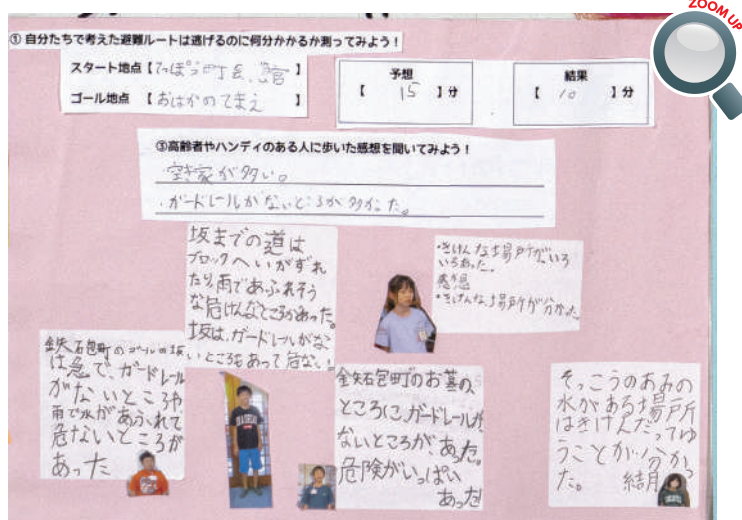 ZOOM UP
① 自分たちで考えた避難ルートは逃げるのに何分かかるか測ってみよう！
スタート地点【てっぽう町 】
ゴール地点 【おはかのてまえ 】
予想
【 15 】分
結果
【 10 】分
③高齢者やハンディのある人に歩いた感想を聞いてみよう！
・空き家が多い。
・ガードレールがないところが多かった。
坂までの道は
ブロックへいがずれ
たり、雨であふれそう
な危けんなところがあった。
坂は、ガードレールがな
いところもあって危ない。
・きけんな場所が、いろ
いろあった。
感想
・きけんな場所が分かった。
鉄砲町のゴールの坂
は急で、ガードレール
がないところや
雨で水があふれて
危ないところが
あった
鉄砲町のお墓の、
ところに、ガードレールが
ないところが、あった。
危険がいっぱい
あった
そっこうのあみの
水がある場所
はきけんだってゆ
うことが分かっ
た。 結月